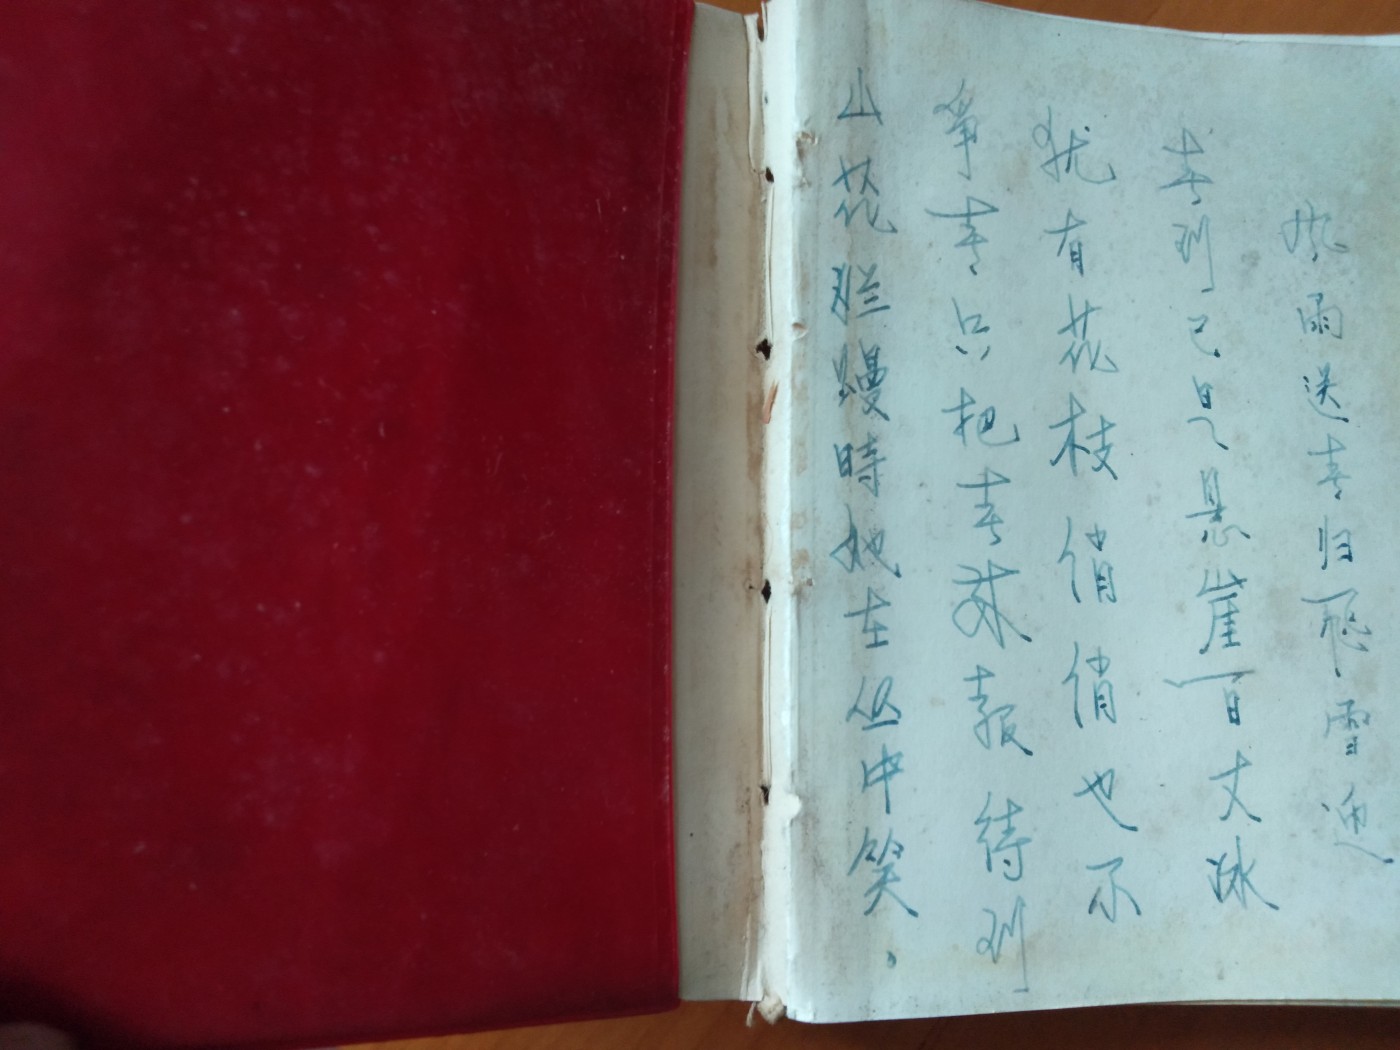 风雨送春归飛雪迎
春到已是悬崖百丈冰
犹有花枝俏俏也不
争春只把春来報待到
山花烂熳時她在丛中笑。